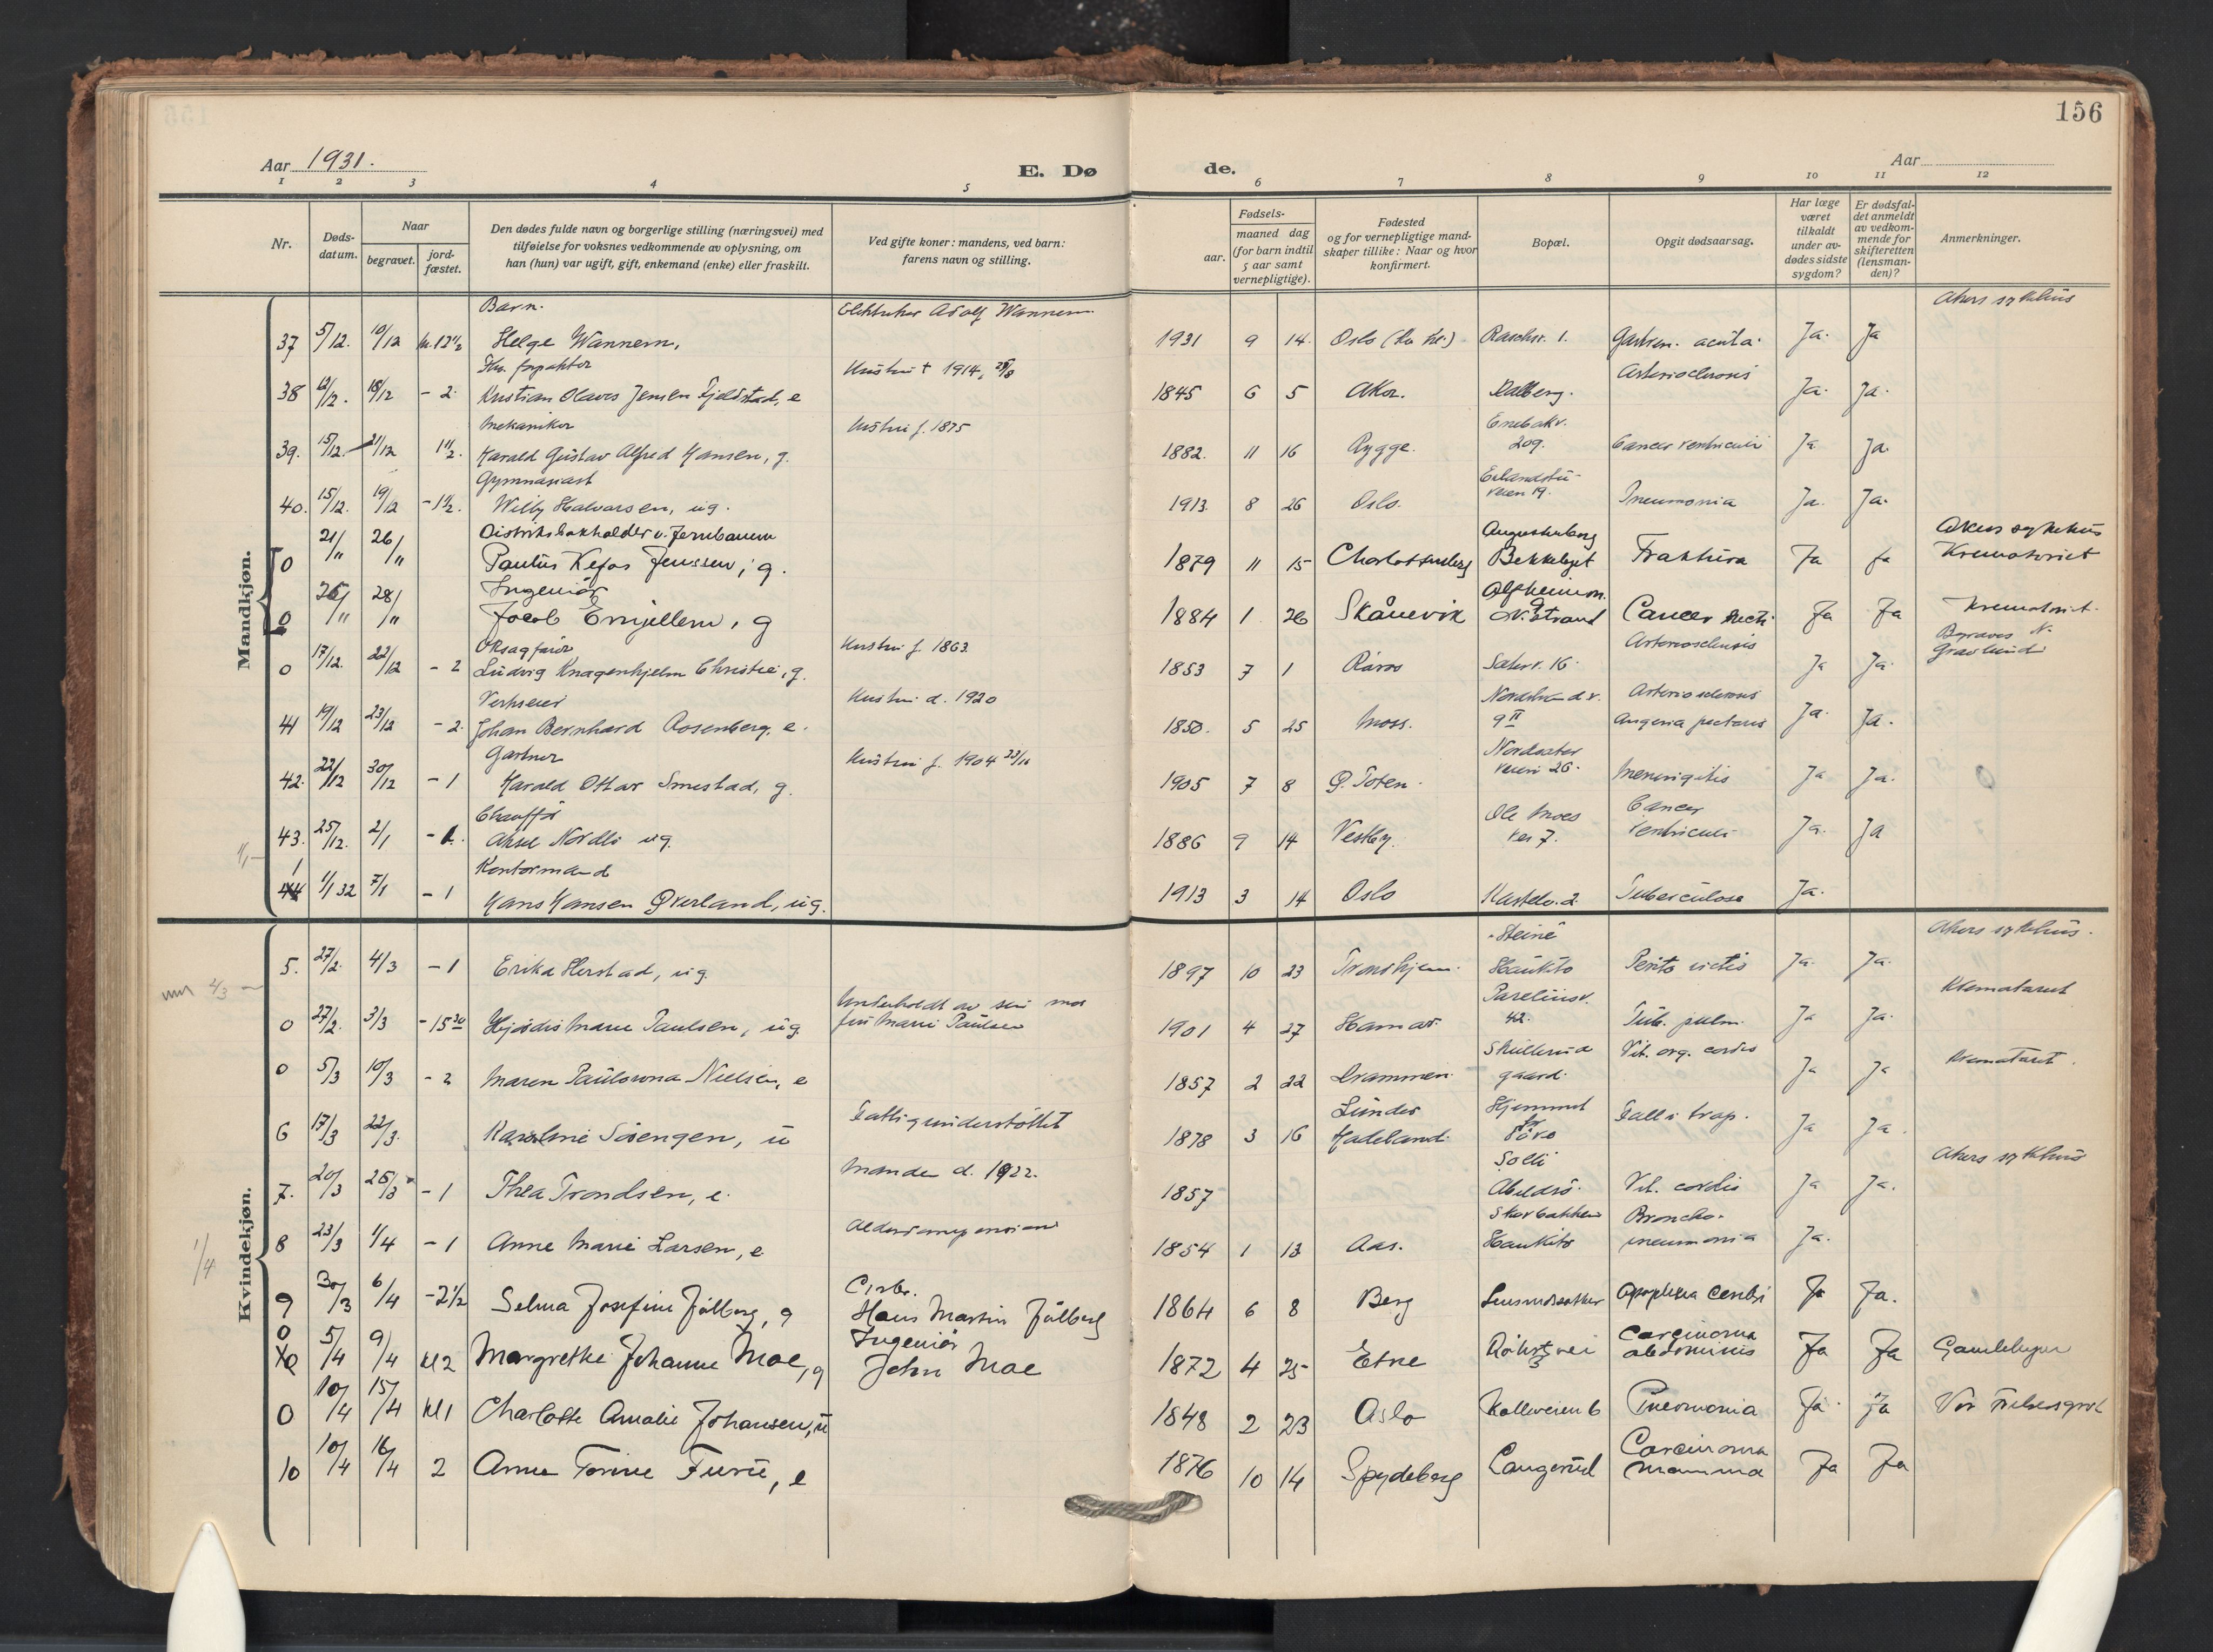 156
Aar 1931.
E. Dø
de.
Aar
1 2 3 4 5 6 7 8 9 10 11 12
Nr.
Døds-
datum.
Naar
begravet.
jord-
fæstet.
Den dødes fulde navn og borgerlige stilling (næringsvei) med
tilføielse for voksnes vedkommende av oplysning, om
han (hun) var ugift, gift, enkemand (enke) eller fraskilt.
Ved gifte koner: mandens, ved barn:
farens navn og stilling.
Fødsels-
aar.
maaned dag
(for barn indtil
5 aar samt
vernepligtige).
Fødested
og for vernepligtige mand-
skaper tillike: Naar og hvor
konfirmert.
Bopæl.
Opgit dødsaarsag.
Har læge
været
tilkaldt
under av-
dødes sidste
sygdom?
Er dødsfal-
det anmeldt
av vedkom-
mende for
skifteretten
(lensman-
den)?
Anmerkninger.
Mandkjøn.
Barn. Adolf Wannem Akers sykehus
37 5/12. 10/12 kl. 12 1/2 Helge Wannem, 1931 9 14. Oslo Raschsv. 1. acuta. Ja. Ja
Hustru † 1914, Arteriosclerosis
38 12/12. 18/12 - 2. Kristian Olaves Jensen Fjeldstad, e 1845 6 5 Aker. Ja. Ja.
Mekaniker Hustru f. 1875 Enebakv.
39. 15/12. 21/12 1 1/2. Harald Gustav Alfred Hansen, g. 1882. 11 16 Rygge. 209. Cancer ventriculi Ja Ja.
Gymnasiast
40. 15/12. 19/12 - 1 1/2. Willy Halvorsen, ug. 1913 8 26 Oslo. veien 19. Pneumonia Ja. Ja.
Distriktskakholder v. Jernbanen Akers sykehus
0 21/" 26/" Paulus Kefas Jenssen, g. 1879 11 15 Charlottenberg Bekkelaget Fraktura Ja Ja Krematoriet
Ingeniør
0 26/" 28/" Jacob Enijellem, g 1884 1 26 Skånevik N. Strand Cancer recti Ja Ja Krematoriet.
Oksagfører Hustru f. 1863 Arteriosclerosis
0 17/12. 22/12 - 2 Ludvig Knagenhjelm Christie, g. 1853 7 1 Røros Sæterv. 16. Ja Ja. Gravlund
Verkseier Hustru d. 1920 Nordstrandv. Arteriosclerosis
41 19/12 23/12 - 2. Johan Bernhard Rosenberg, e. 1850. 5 25 Moss. 9 II Angina pectoris Ja. Ja.
Gartner Hustru f. 1904 Nordsæter
42. 22/12 30/12 - 1 Harald Ottar Smestad, g. 1905 7 8 Ø. Toten. veien 26. Meningitis Ja Ja.
Chauffør Ole Moes Cancer
43. 25/12. 2/1 Aksel Nordli ug. 1886 9 14 Vestby. vei 7. ventriculi Ja. Ja
Kontormand
1 1/1 32 7/1 - 1 Hans Hansen Øverland, ug. 1913 3 14 Oslo Kastelv. 2 Tuberculose Ja.
Kvindekjøn.
Akers sykehus.
5. 27/2. 4/3 - 1 Erika Herstad, ug. 1897 10 23 Trondhjem. Hauketo Peritonitis Ja. Ja.
Underholdt av sin mor Parelius v. Krematoriet
0 27/2. 3/3 - 15 30 Hjørdis Marie Paulsen, ug. fru Marie Paulsen 1901 4 27 Hamar. 42. Tub. pulm. Ja Ja.
Skullerud Vit. org. cordis Krematoriet.
0 5/3 10/3 - 2 Maren Paulowna Nielsen, e 1857 2 22 Drammen. gaard. Ja Ja
Fattigunderstøttet Lunder Hjemmet
6 17/3 22/3. Karoline Søengen, u 1878 3 16 Hadeland. Fall i trap. Ja Ja.
Manden d. 1922. Solli Akers sykehus
7. 20/3 26/3 - 1 Thea Trondsen, e. 1857 Abildsø. Vit. cordis Ja Ja.
Skovbakken Broncho-
8 23/3 1/4 - 1 Anne Marie Larsen, e 1854 1 13 Aas. Hauketo pneumonia Ja.
9 30/3 6/4 - 2 1/2 Selma Josefine Fjølberg, g Hans Martin Fjølberg 1864 6 8 Berg Apoplexia Cerebri Ja Ja.
Ingeniør Carcinoma
0 5/4 9/4 kl 2 Margrethe Johanne Moe, g John Moe 1872 4 25 Etne abdominis Ja Ja Gamlebyen
0 10/4 15/4 kl 1 Charlotte Amalie Johansen, u 1848 2 23 Oslo Kolleveien 6 Pneumonia Ja. Ja Vor Frelsersgrvl
Carcinoma
10 10/4 16/4 2 Anne Torine Furu, e 1876 10 14 Spydeberg Langerud Mamma Ja Ja